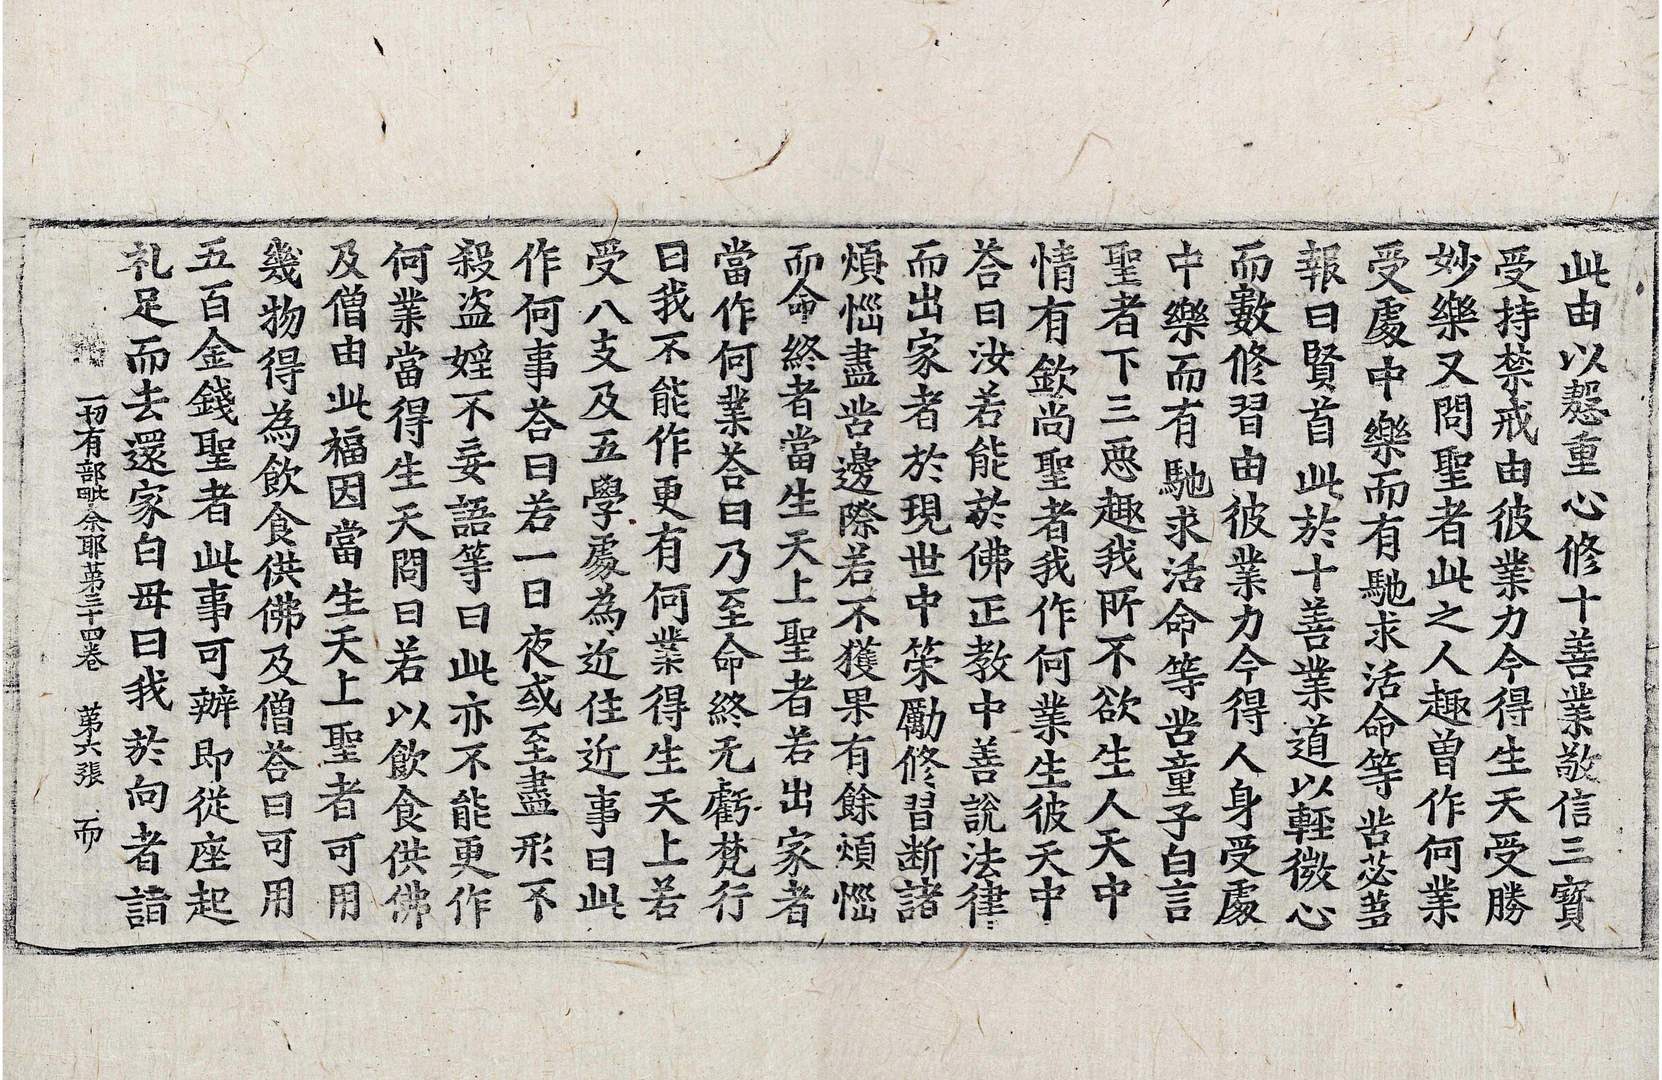 此由以慇重心修十善業敬信三寶
受持禁戒由彼業力今得生天受勝
妙樂又問聖者此之人趣曾作何業
受處中樂而有馳求活命等苦苾芻
報曰賢首此於十善業道以輕微心
而數修習由彼業力今得人身受處
中樂而有馳求活命等苦童子白言
聖者下三惡趣我所不欲生人天中
情有欽尚聖者我作何業生彼天中
荅曰汝若能於佛正教中善說法律
而出家者於現世中策勵修習断諸
煩惱盡苦邊際若不獲果有餘煩惱
而命終者當生天上聖者若出家者
當作何業荅曰乃至命終无虧梵行
曰我不能作更有何業得生天上若
受八支及五學處為近住近事曰此
作何事荅曰若一日夜或至盡形不
殺盜婬不妄語等曰此亦不能更作
何業當得生天問曰若以飲食供佛
及僧由此福因當生天上聖者可用
幾物得為飲食供佛及僧荅曰可用
五百金錢聖者此事可辦即從座起
礼足而去還家白母曰我於向者詣
一切有部毗奈耶第三十四卷　第六張　而